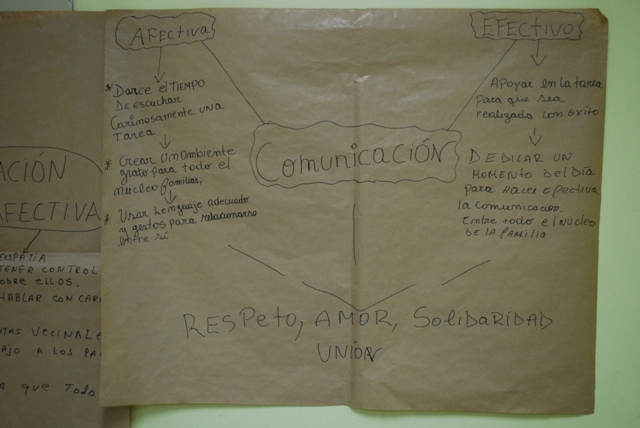 AFECTIVA
* Darce el TIEMPO
De escuchar
Cariñosamente una
Tarea
* Crear un Ambiente
grato para todo el
Nucleo familiar,
* Usar Lenguaje adecuado
y gestos para relacionarse
entre sí
Comunicación
EFECTIVO
Apoyar en la tarea
para que sea
realizada con éxito
DEDICAR UN
MOMENTO DEL DÍA
para hacer efectiva
la comunicación.
Entre todo el NUCLEO
DE LA FAMILIA
RESPeto, AMOR, SoliDaRIDAD
UNIÓN
ACIÓN
AFECTIVA
TENER CONTROL
obre ellos.
HABLAR CON CAR
TAS VECINALE
AJO A LOS PA
A que Todo